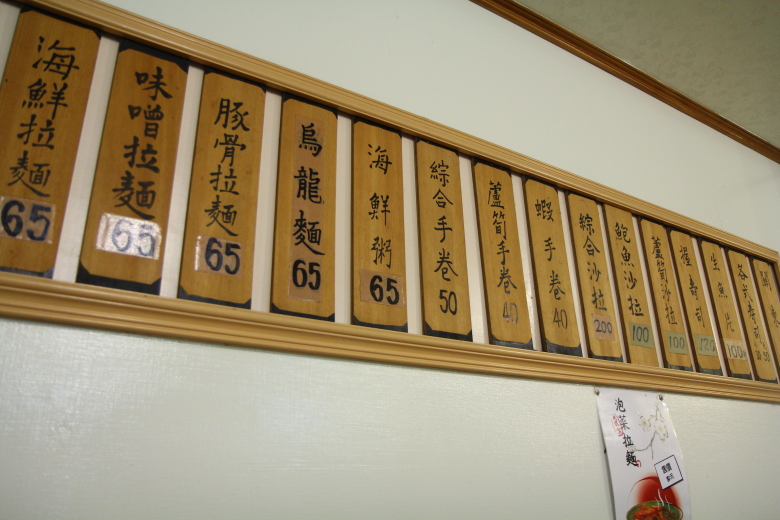 海鮮拉麵
65
味噌拉麵
65
豚骨拉麵
65
烏龍麵
65
海鮮粥
65
綜合手卷
50
蘆筍手卷
40
蝦手卷
40
綜合沙拉
200
鮑魚沙拉
100
蘆筍沙拉
100
握壽司
120
生魚片
100
各式壽司
泡菜拉麵